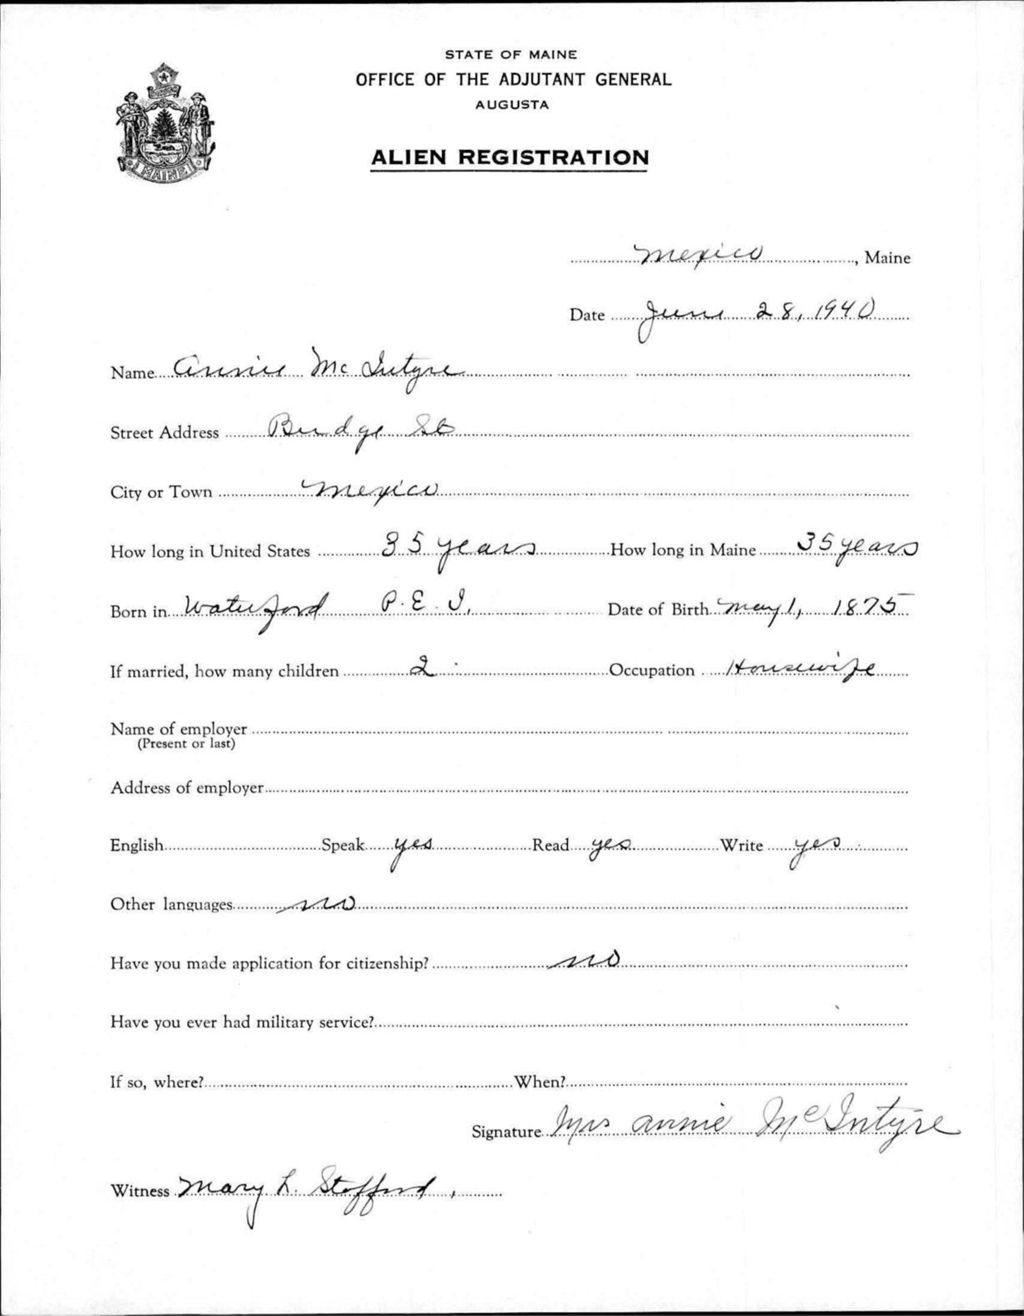 STATE OF MAINE
OFFICE OF THE ADJUTANT GENERAL
AUGUSTA
ALIEN REGISTRATION
MAINE
Mexico, Maine
Date June 28, 1940
Name Annie McIntyre
Street Address Bridge St
City or Town Mexico
How long in United States 35 years How long in Maine 35 years
Born in Waterford P.E.I. Date of Birth May 1, 1875
If married, how many children 2 Occupation Housewife
Name of employer
(Present or last)
Address of employer
English Speak yes Read yes Write yes
Other languages no
Have you made application for citizenship? no
Have you ever had military service?
If so, where? When?
Signature Mrs Annie McIntyre
Witness Mary L. Stafford,